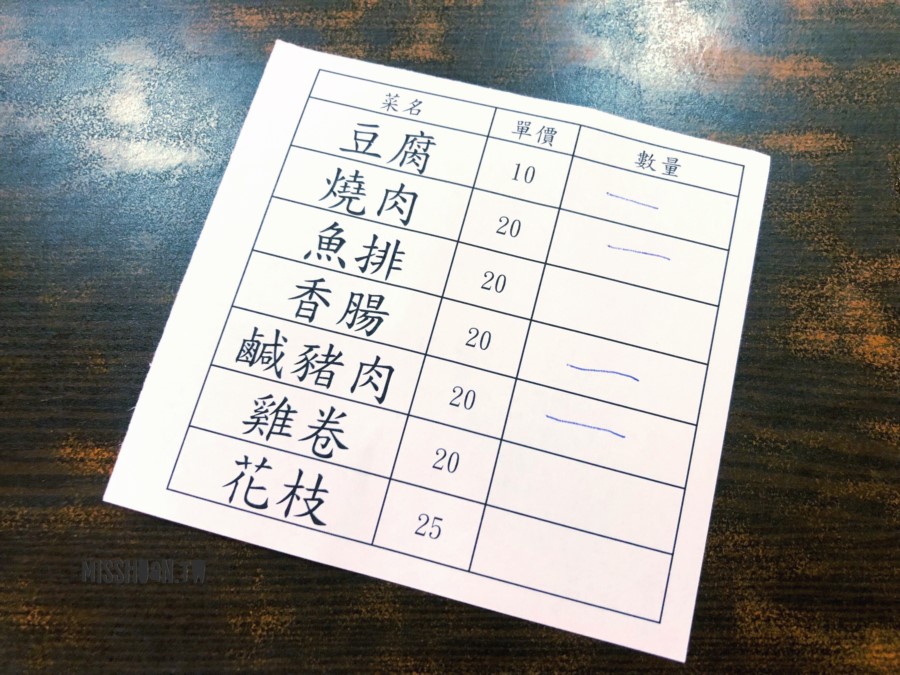 菜名 單價 數量
豆腐 10 一
燒肉 20 一
魚排 20
香腸 20 一
鹹豬肉 20 一
雞卷 20
花枝 25
MISSHUAN.TW